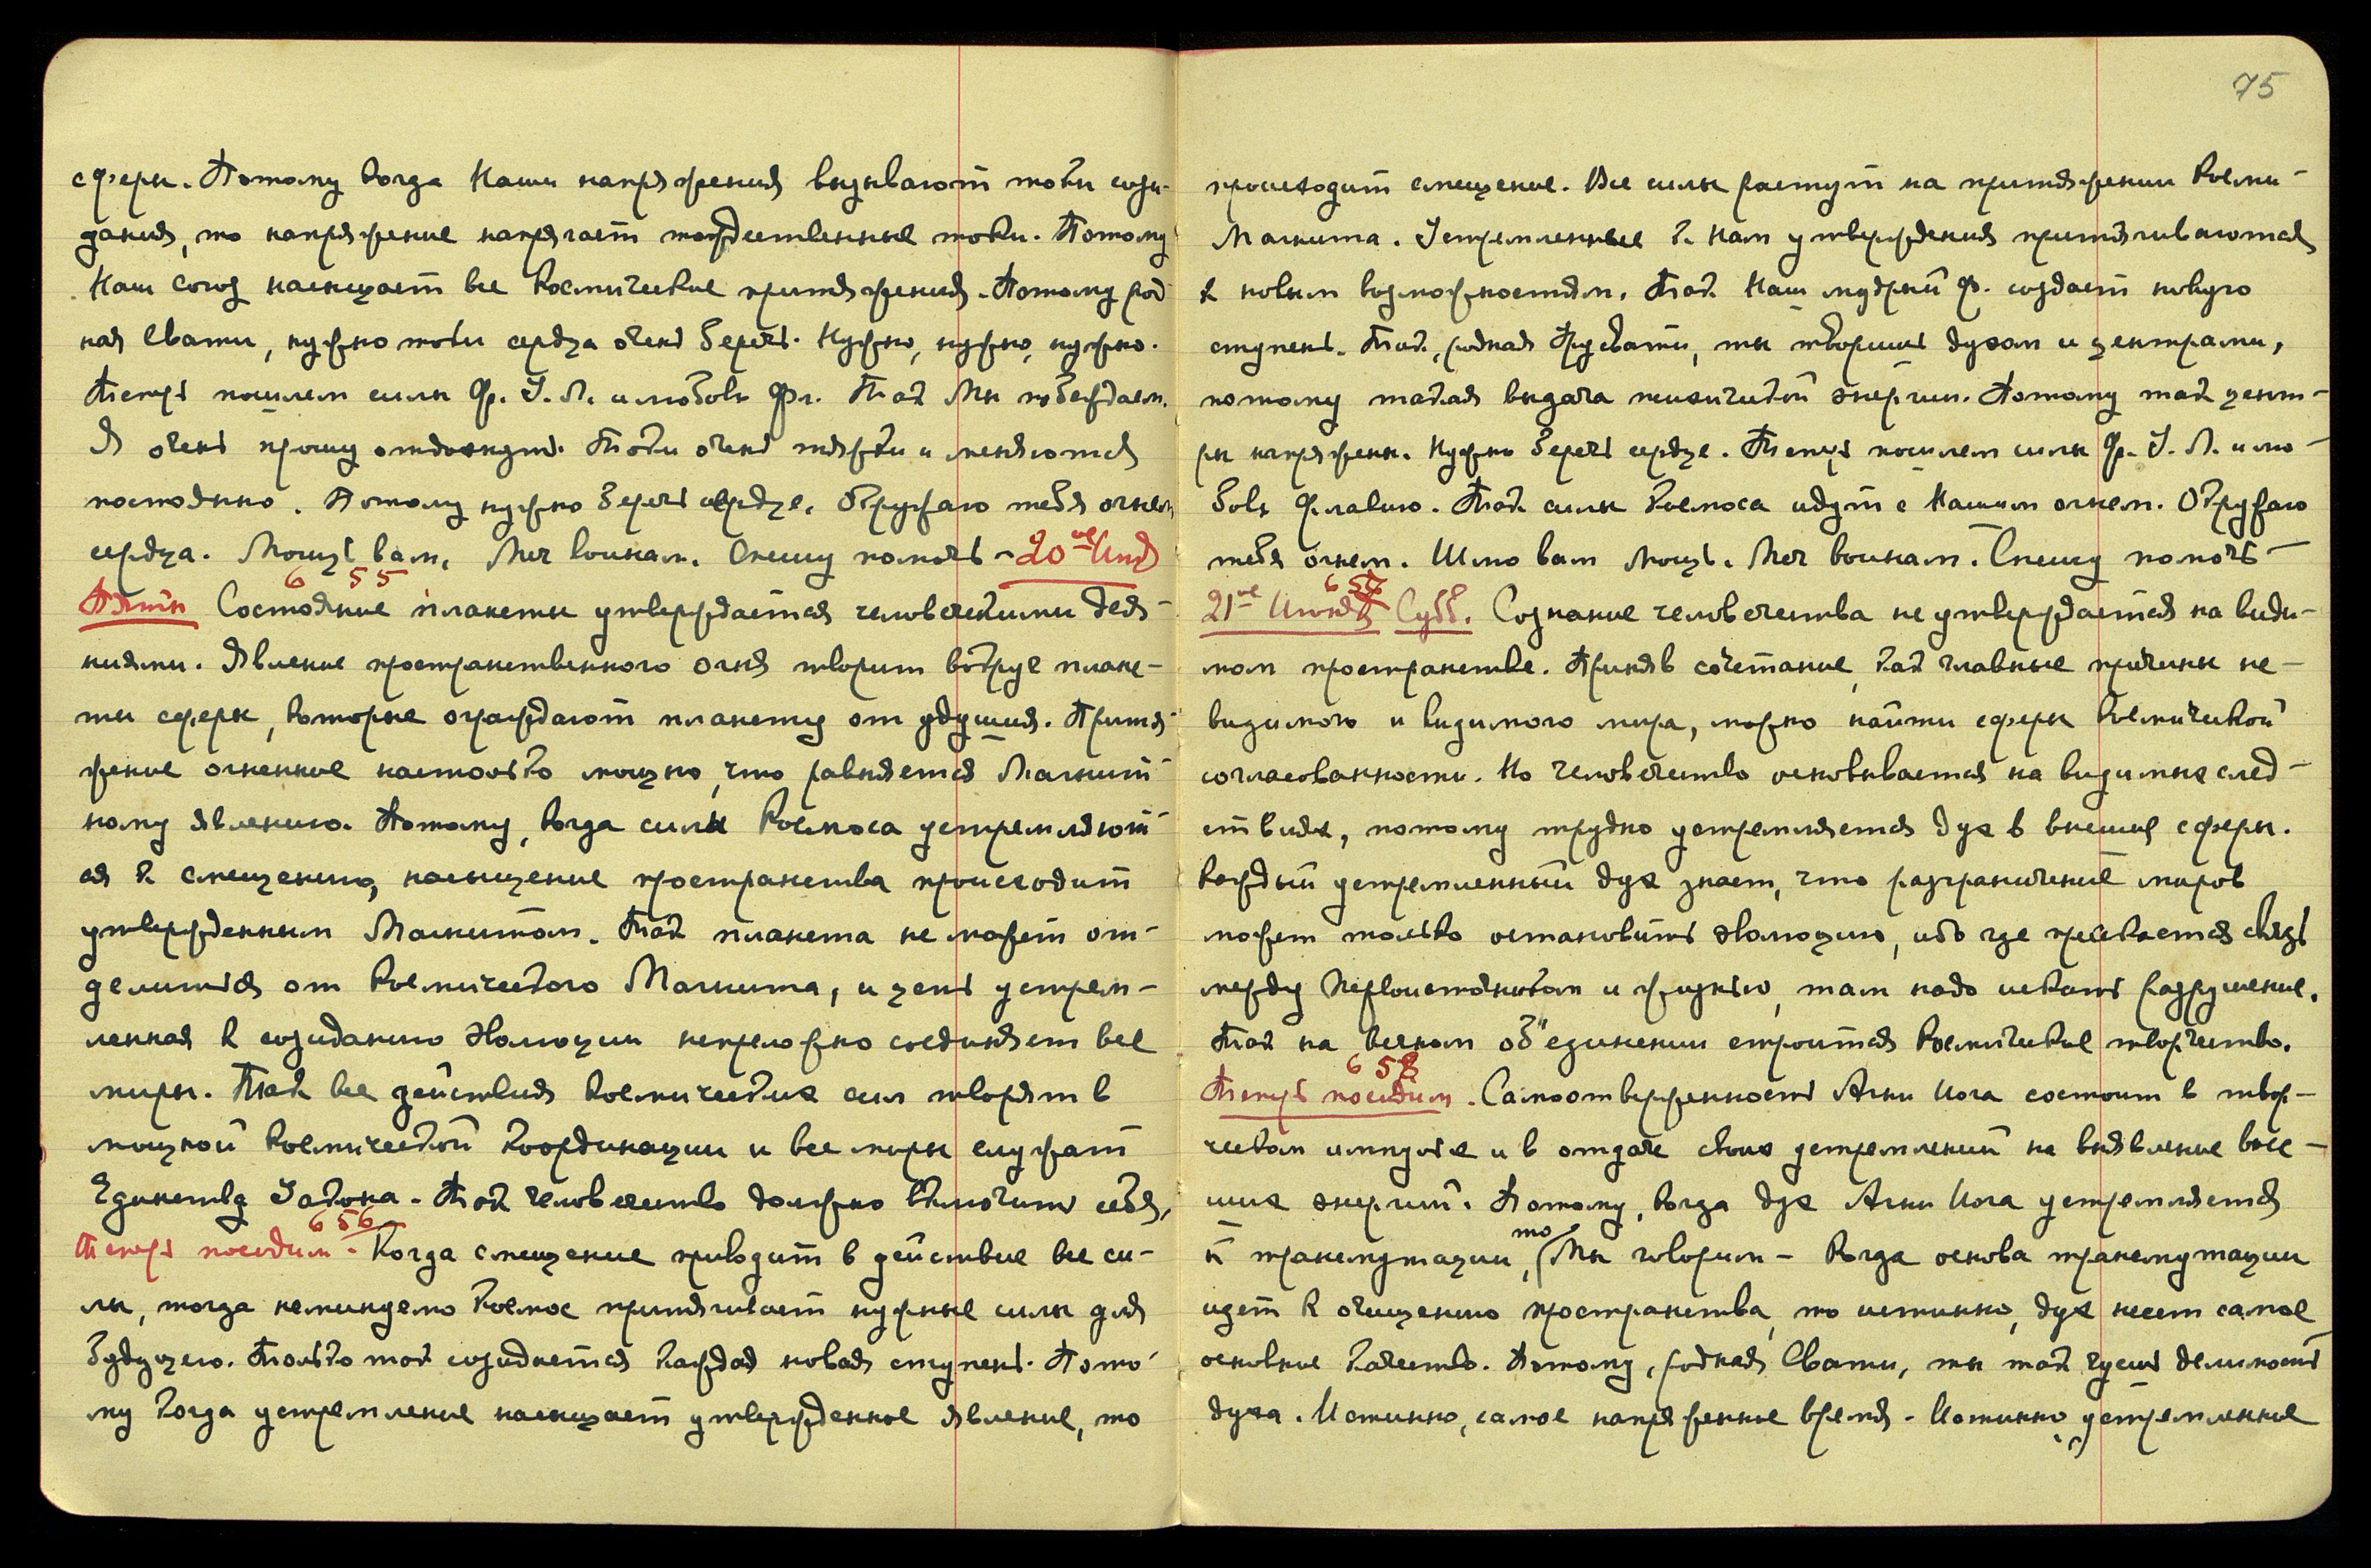 сферы. Потому когда Наши напряжения вызывают токи сози-
дания, то напряжение напрягает тождественные токи. Потому
Наш союз насыщает все космические притяжения. Потому род
ная Свати, нужно токи сердца очень беречь. Нужно, нужно, нужно.
Теперь пошлем силы Ф. У. Л. и любовь Фл. Так Мы побеждаем.
Я очень прошу отдохнуть. Токи очень тяжки и меняются
постоянно. Потому нужно беречь сердце. Окружаю тебя огнем
сердца. Мощь вам. Меч воинам. Спешу помочь – 20ое Июня
655
Пятн Состояние планеты утверждается человеческими дея-
ниями. Явление пространственного огня творит вокруг плане-
ты сферы, которые ограждают планету от удушия. Притя-
жение огненное настолько мощно, что равняется Магнит-
ному явлению. Потому, когда силы Космоса устремляют-
ся к смещению, насыщение пространства происходит
утвержденным Магнитом. Так планета не может от-
делиться от Космического Магнита, и цепь устрем-
ленная к созиданию Эволюции непреложно соединяет все
миры. Так все действия космических сил творят в
мощной космической координации и все миры служат
Единству Закона. Так человечество должно включить себя.
656
Теперь посидим. Когда смещение приводит в действие все си-
лы, тогда неминуемо Космос притягивает нужные силы для
будущего. Только так созидается каждая новая ступень. Пото-
му когда устремление насыщает утвержденное явление, то
75
происходит смещение. Все силы растут на притяжении Косми-
Магнита. Устремленные к Нам утверждения притягиваются
к новым возможностям. Так Наш мудрый Ф. создает новую
ступень. Так, родная Урусвати, ты творишь духом и центрами,
потому такая выдача психической энергии. Потому так цент-
ры напряжены. Нужно беречь сердце. Теперь пошлем силы Ф. У. Л. и лю-
бовь Флавию. Так силы Космоса идут с Нашим огнем. Окружаю
тебя огнем. Шлю вам Мощь. Меч воинам. Спешу помочь –
657
21ое Июня Субб. Сознание человечества не утверждается на види-
мом пространстве. Приняв сочетание, как главные причины не-
видимого и видимого мира, можно найти сферы Космической
согласованности. Но человечество основывается на видимых след-
ствиях, потому трудно устремляется дух в высшие сферы.
Каждый устремленный дух знает, что разграничение миров
может только остановить эволюцию, ибо где пресекается связь
между Первоисточником и жизнью, там надо искать разрушение.
Так на вечном об"единении строится космическое творчество.
658
Теперь посидим. Самоотверженность Агни Йога состоит в твор-
ческом импульсе и в отдаче своих устремлений на выявление выс-
ших энергий. Потому, когда дух Агни Йога устремляется
к трансмутации, то Мы говорим – Когда основа трансмутации
идет к очищению пространства, то истинно, дух несет самое
основное качество. Потому, родная Свати, ты так чуешь делимость
духа. Истинно, самое напряженное время. Истинно, устремленные